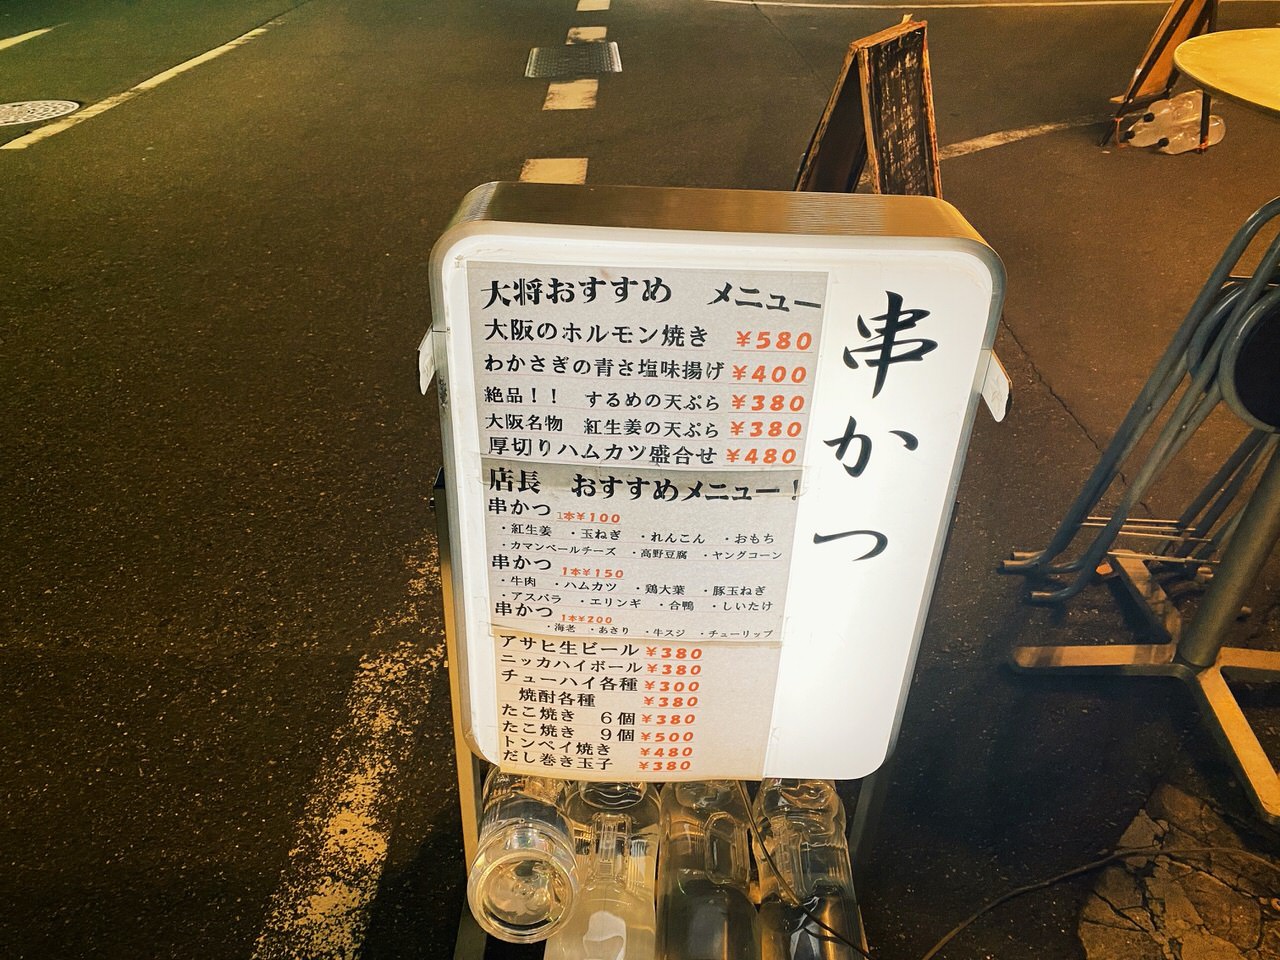 大将おすすめ メニュー
大阪のホルモン焼き ¥580
わかさぎの青さ塩味揚げ ¥400
絶品！！ するめの天ぷら ¥380
大阪名物 紅生姜の天ぷら ¥380
厚切りハムカツ盛合せ ¥480
店長 おすすめメニュー！
串かつ 1本¥100
・紅生姜 ・玉ねぎ ・れんこん ・おもち
・カマンベールチーズ ・高野豆腐 ・ヤングコーン
串かつ 1本¥150
・牛肉 ・ハムカツ ・鶏大葉 ・豚玉ねぎ
・アスパラ ・エリンギ ・合鴨 ・しいたけ
串かつ 1本¥200
・海老 ・あさり ・牛スジ ・チューリップ
アサヒ生ビール ¥380
ニッカハイボール ¥380
チューハイ各種 ¥300
焼酎各種 ¥380
たこ焼き 6個 ¥380
たこ焼き 9個 ¥500
トンペイ焼き ¥480
だし巻き玉子 ¥380
串かつ